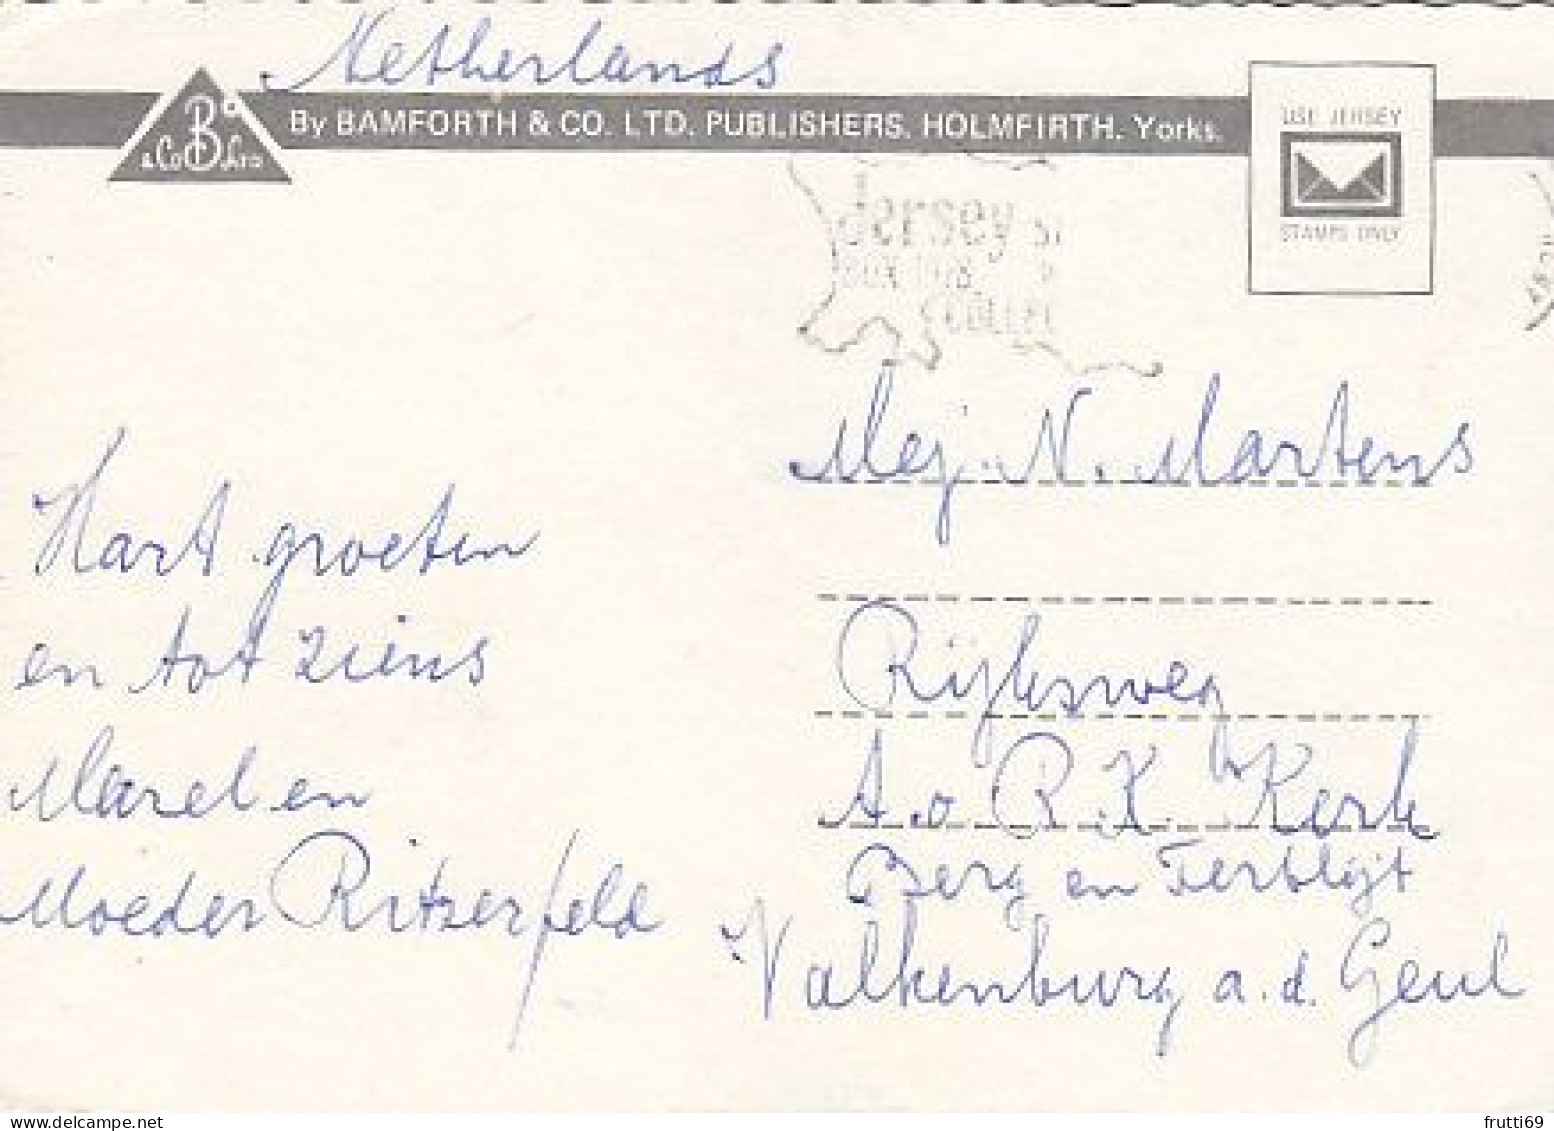 Netherlands
B & Co Ltd
By BAMFORTH & CO. LTD. PUBLISHERS. HOLMFIRTH. Yorks.
USE JERSEY
STAMPS ONLY
Jersey
Hart groeten
en tot ziens
Marel en
Moeder Ritzerfeld
Mej. N. Martens
Rijksweg
t.o R.K. Kerk
Berg en Terblijt
Valkenburg a.d. Geul
frutti69